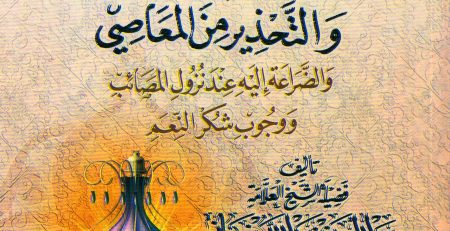 وَالتَّحْذِيرُ مِنَ المَعَاصِي
وَالضَّرَاعَةِ إِلَيْهِ عِنْدَ نُزُولِ المَصَائِبِ
وَوُجُوبُ شُكْرِ النِّعَمِ
تأليف
فضيلة الشيخ العلامة